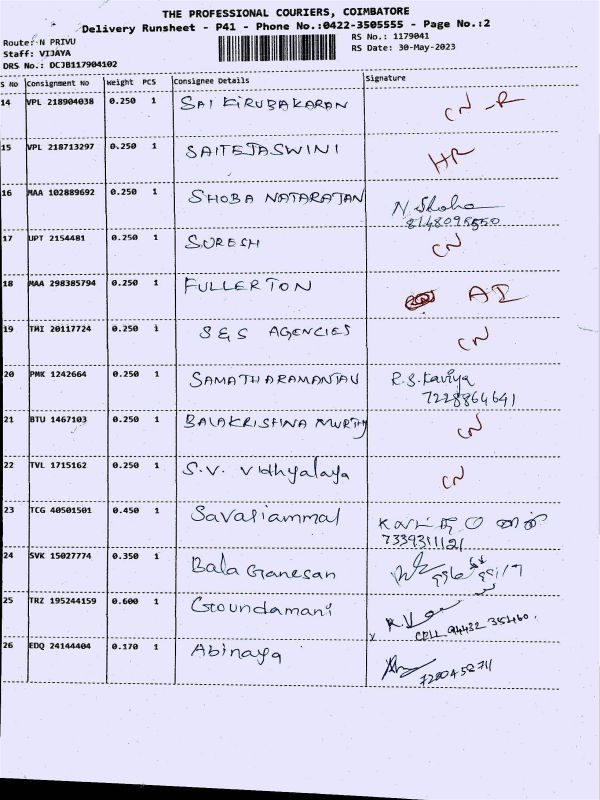 THE PROFESSIONAL COURIERS, COIMBATORE
Delivery Runsheet - P41 - Phone No.:0422-3505555 - Page No.:2
Route: N PRIVU RS No.: 1179041
Staff: VIJAYA RS Date: 30-May-2023
DRS No.: DCJB117904102
S No Consignment No Weight PCS Consignee Details Signature
14 VPL 218904038 0.250 1 SAI KIRUBAKARAN CN -R
15 VPL 218713297 0.250 1 SAITEJASWINI HR
16 MAA 102889692 0.250 1 SHOBA NATARAJAN N. Shoba
8148095550
17 UPT 2154481 0.250 1 SURESH CN
18 MAA 298385794 0.250 1 FULLERTON
19 TMI 20117724 0.250 1 S&S AGENCIES CN
20 PMK 1242664 0.250 1 R.S. Kaviya
7228864641
21 BTU 1467103 0.250 1 BALAKRISHNA MURTHY CN
22 TVL 1715162 0.250 1 S.V. Vidhyalaya CN
23 TCG 40501501 0.450 1 Savariammal
7339311121
24 SVK 15027774 0.350 1 Bala Ganesan
25 TRZ 195244159 0.600 1 Goundamani
CELL 94432 35460.
26 EDQ 24144404 0.170 1 Abinaya